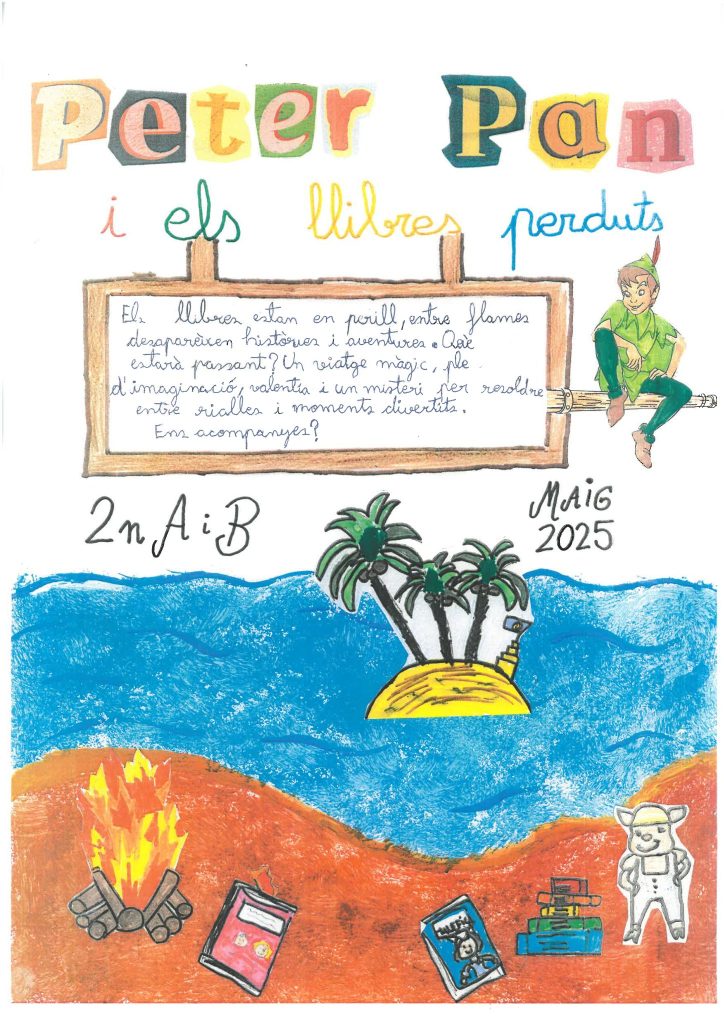 Peter Pan
i els llibres perduts
Els llibres estan en perill, entre flames
desapareixen històries i aventures. Què
estarà passant? Un viatge màgic, ple
d'imaginació, valentia i un misteri per resoldre
entre rialles i moments divertits.
Ens acompanyes?
2n A i B
MAiG
2025